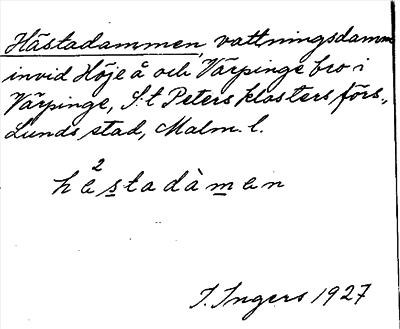 Hästadammen, vattningsdamm
invid Höje å och Värpinge bro i
Värpinge, S:t Peters klosters förs.,
Lunds stad, Malm. l.
hè²stadàmen
I. Ingers 1927